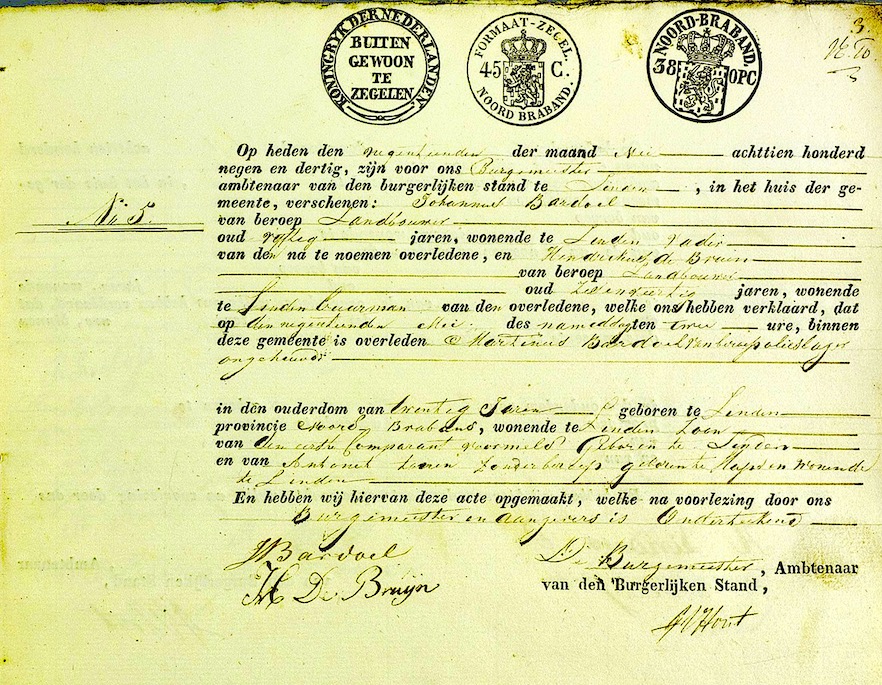 KONINGRYK DER NEDERLANDEN
BUITEN
GEWOON
TE
ZEGELEN
FORMAAT-ZEGEL.
45 C.
NOORD BRABAND.
NOORD-BRABAND.
38 OPC
3.
Op heden den negentienden der maand Mei achttien honderd
negen en dertig, zijn voor ons Burgemeester
ambtenaar van den burgerlijken stand te Linden, in het huis der ge-
meente, verschenen: Johannes Bardoel
No. 5.
van beroep Landbouwer
oud vijftig jaren, wonende te Linden vader
van den na te noemen overledene, en Hendrikus de Bruin
van beroep Landbouwer
oud jaren, wonende
te Linden Buurman van den overledene, welke ons hebben verklaard, dat
op den negentienden Mei des nameddagten twee ure, binnen
deze gemeente is overleden Martinus Bardoel van beroep
ongehuwd
in den ouderdom van twentig Jaren geboren te Linden
provincie Noord Braband, wonende te Linden Zoon
van den eerste Comparant voormeld Geboren te Linden
en van Antonet zonder beroep geboren te en Wonende
te Linden
En hebben wij hiervan deze acte opgemaakt, welke na voorlezing door ons
Burgemeester en aangevers is Onderteekend
JBardoel
De Burgemeester, Ambtenaar
H De Bruijn
van den Burgerlijken Stand,